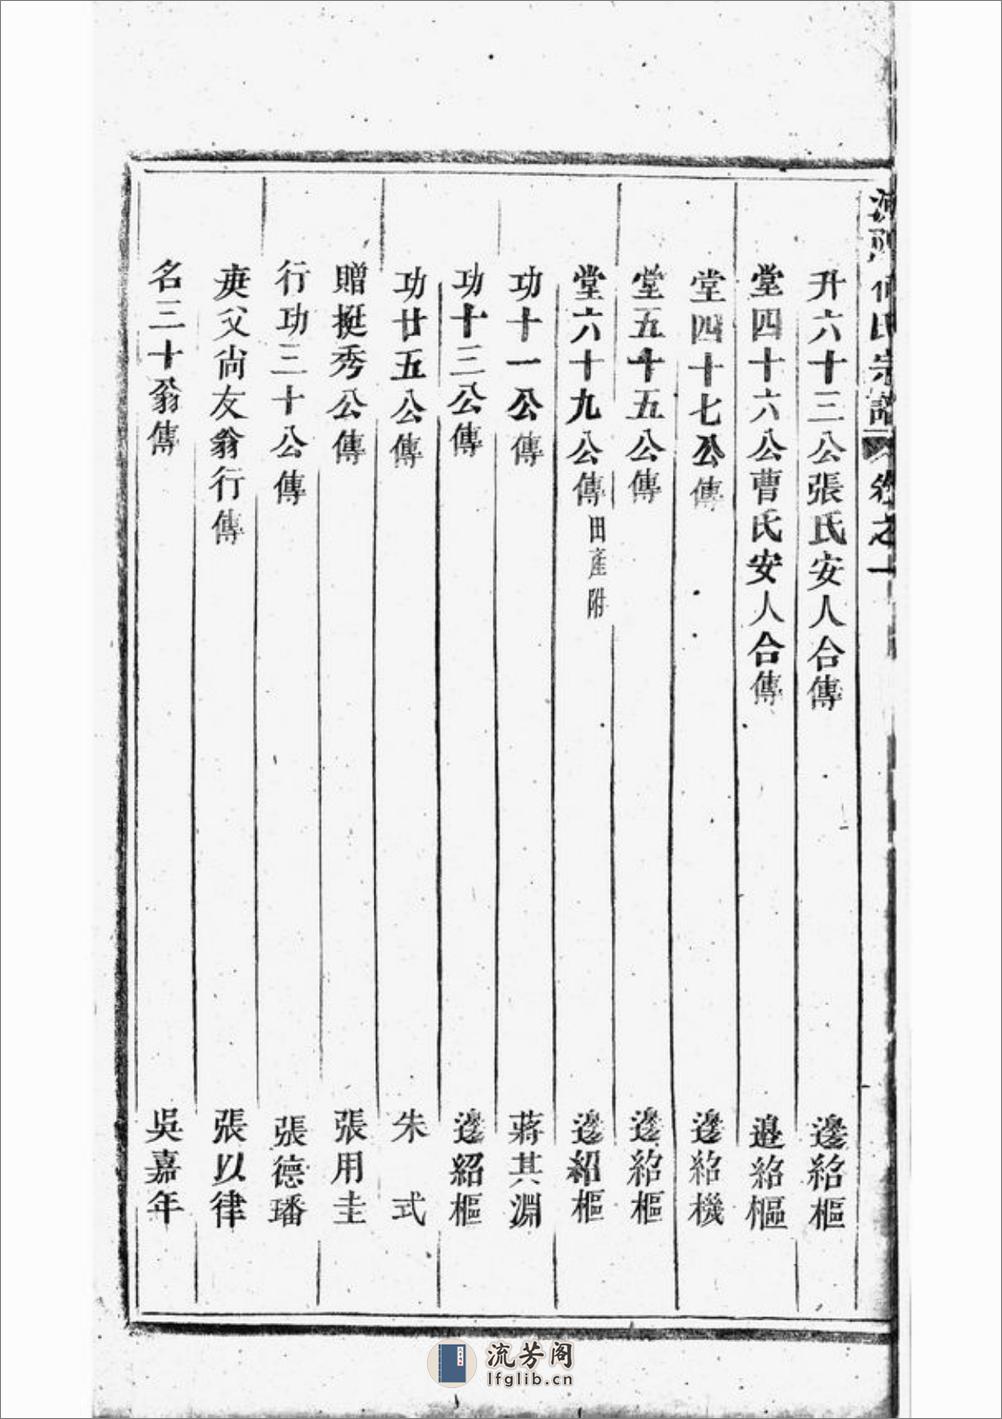 氏宗譜 卷之一
升六十三公張氏安人合傳 邊紹樞
堂四十六公曹氏安人合傳 邊紹樞
堂四十七公傳 邊紹機
堂五十五公傳 邊紹樞
堂六十九公傳 田產附 邊紹樞
功十一公傳 蔣其淵
功十三公傳 邊紹樞
功廿五公傳 朱式
贈挺秀公傳 張用圭
行功三十公傳 張德璠
庚父尙友翁行傳 張以律
名三十翁傳 吳嘉年
流芳阁
lfglib.cn